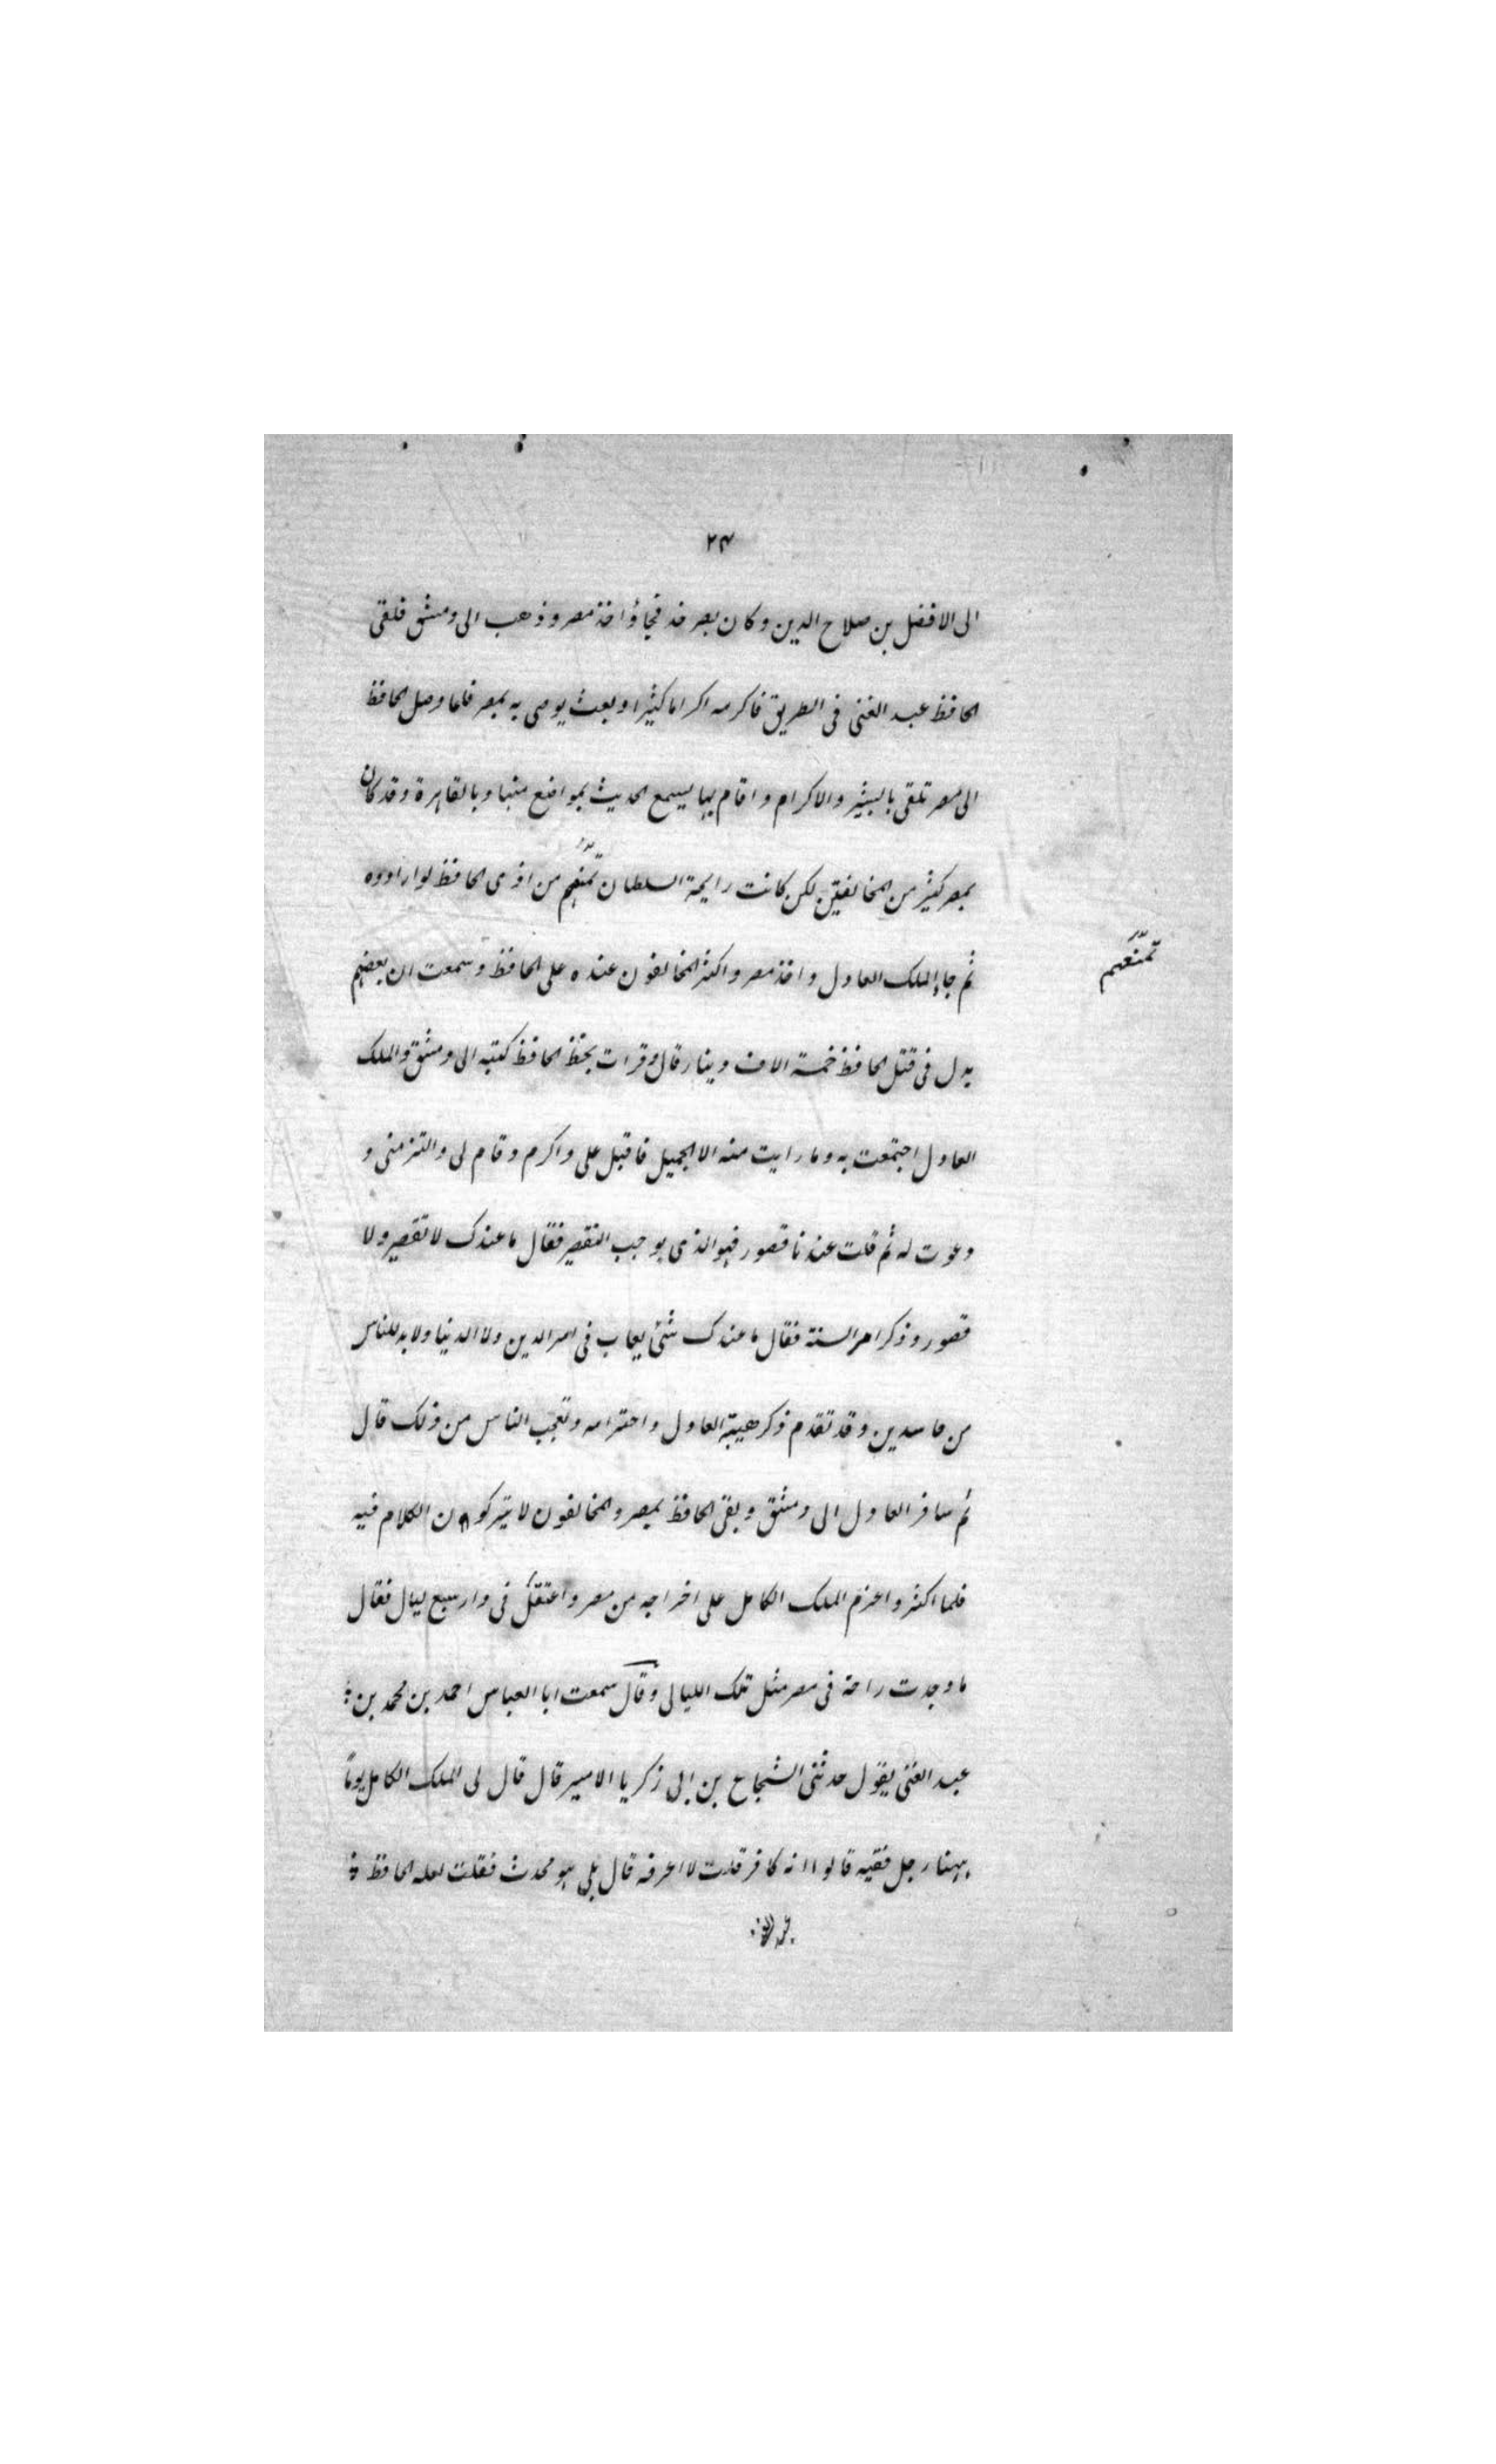 ٢٣
الى الافضل بن صلاح الدين وكان بصرخد فجاؤا خذ مصر وذهب الى دمشق فلقى
الحافظ عبد الغنى فى الطريق فاكرمه اكراما كثيرا وبعث يوصى به بمصر فلما وصل الحافظ
الى مصر تلقى بالبشر والاكرام واقام بها يسمع الحديث بمواضع منها وبالقاهرة وقد كان
بمصر كثير من المخالفين لكن كانت رايحة السلطان تمنعهم من اذى الحافظ لو ارادوه
تمنعهم
ثم جاء الملك العادل واخذ مصر واكثر المخالفون عنده على الحافظ وسمعت ان بعضهم
بدل فى قتل الحافظ خمسة الاف دينار قال وقرات بخط الحافظ كتبه الى دمشق والملك
العادل اجتمعت به وما رايت منه الا الجميل فاقبل على واكرم وقام لى والتزمنى و
دعوت له ثم قلت عندنا قصور فهو الذى يوجب التقصير فقال ما عندك لا تقصير ولا
قصور وذكر امر السنة فقال ما عندك شئ يعاب فى امر الدين ولا الدنيا ولا بد للناس
من حاسدين وقد تقدم ذكر هيبة العادل واحترامه وتعجب الناس من ذلك قال
ثم سافر العادل الى دمشق وبقى الحافظ بمصر والمخالفون لا يتركون الكلام فيه
فلما اكثروا عزم الملك الكامل على اخراجه من مصر واعتقل فى دار سبع ليال فقال
ما وجدت راحة فى مصر مثل تلك الليالى وقال سمعت ابا العباس احمد بن محمد بن
عبد الغنى يقول حدثنى الشجاع بن ابى زكريا الامير قال قال لى الملك الكامل يوما
ههنا رجل فقيه قالوا انه كافر قلت لا اعرفه قال بلى هو محدث فقلت لعله الحافظ
عبد الغنى